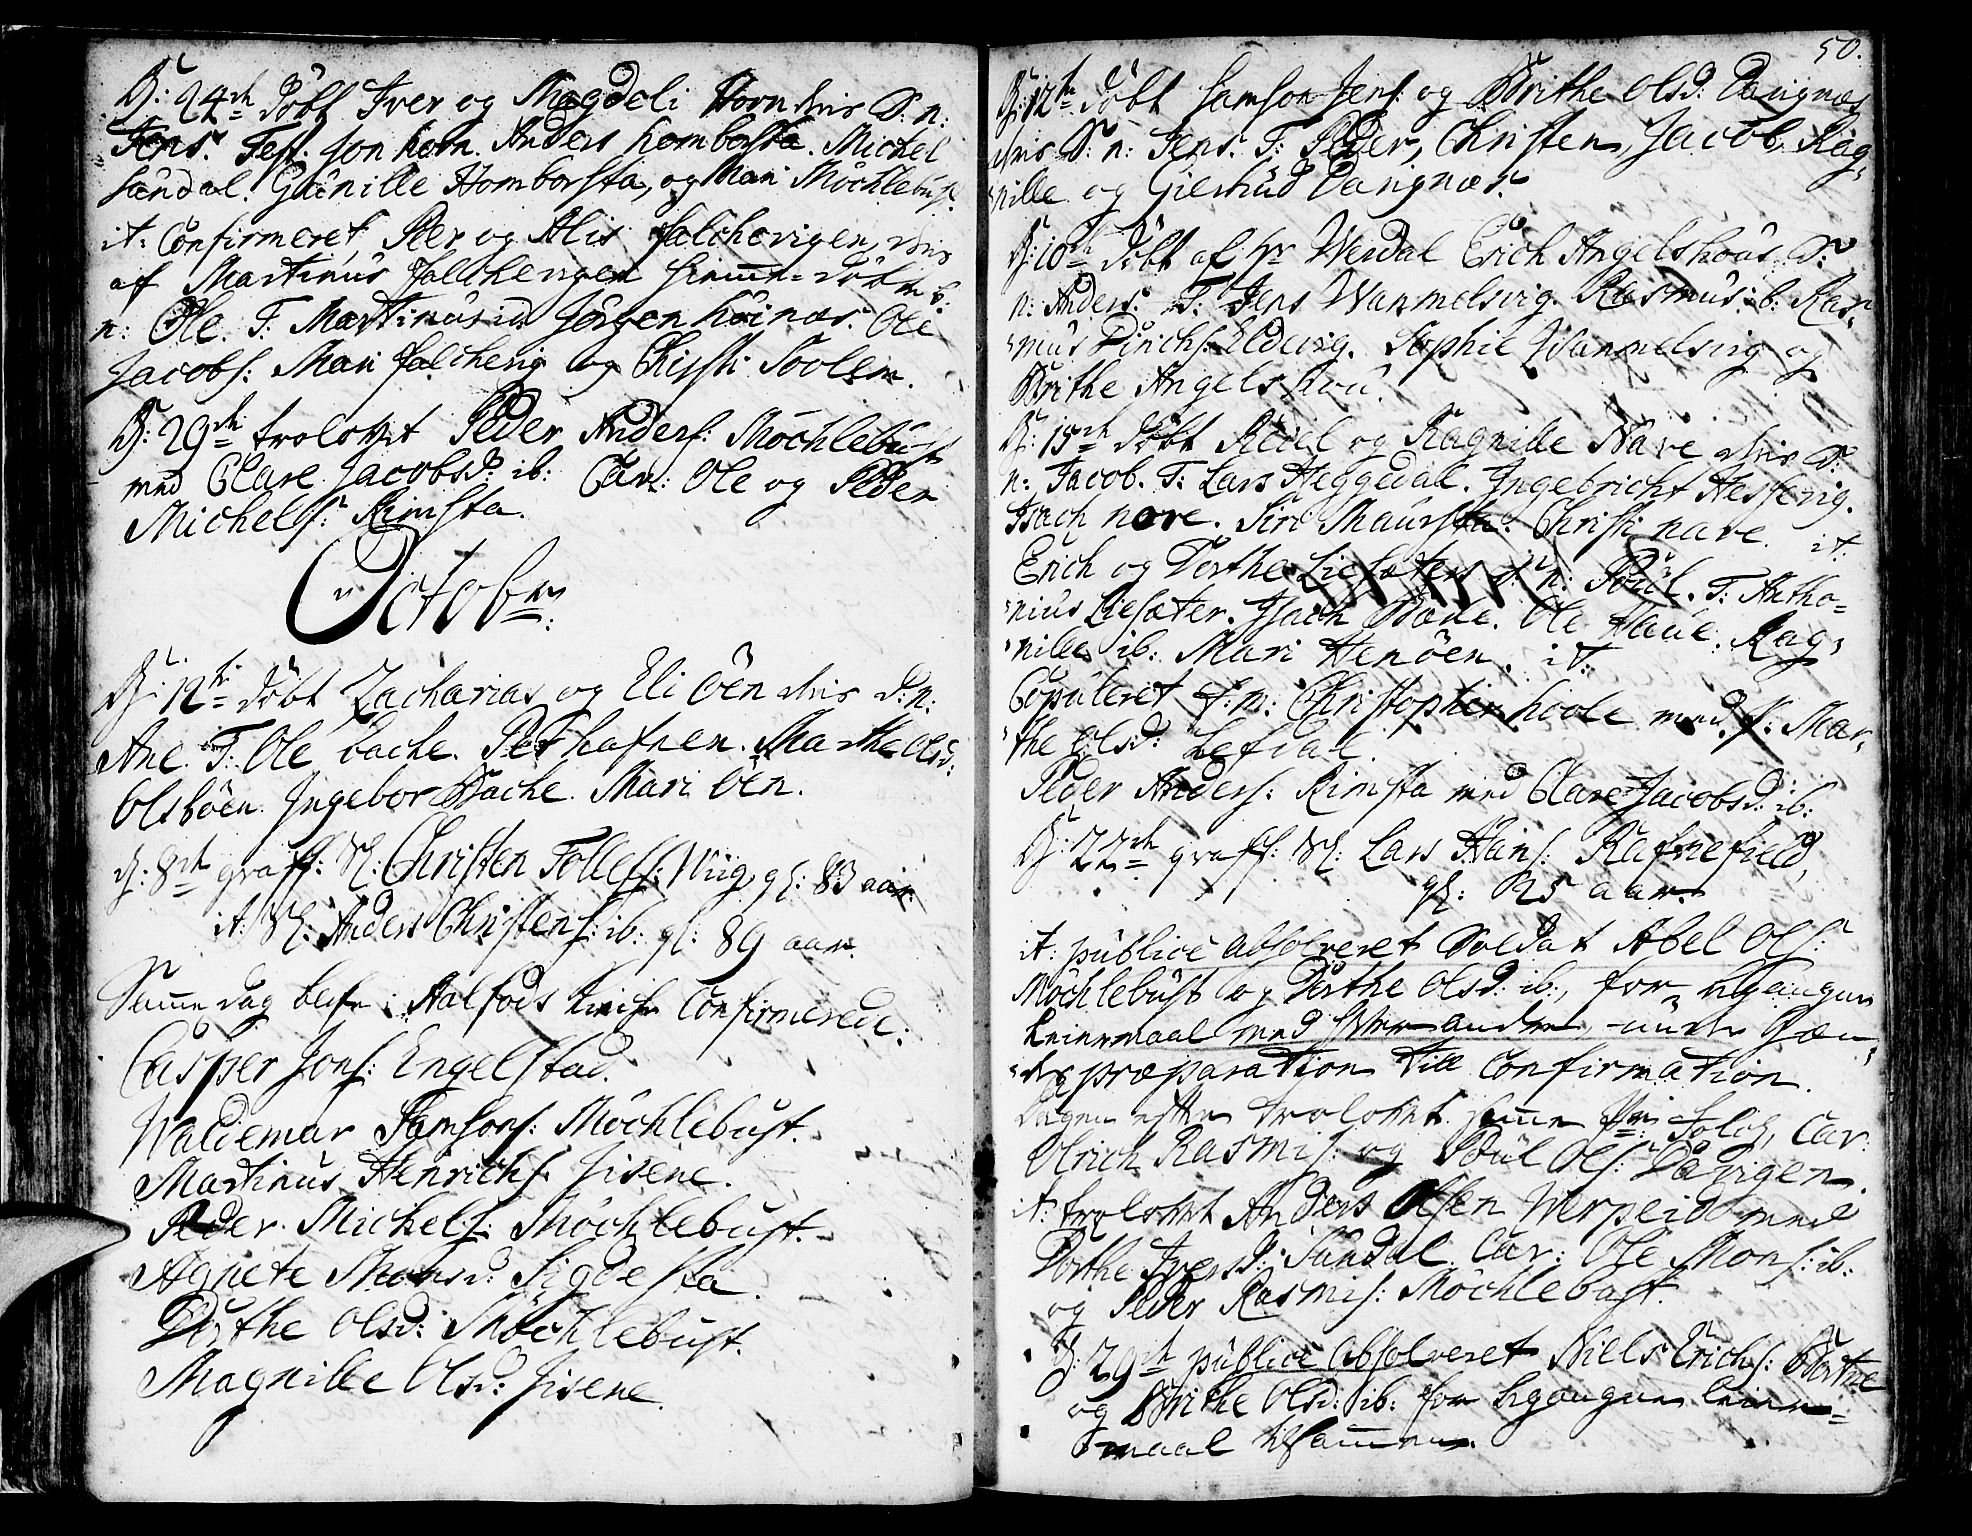 D: 24de döbt Iver og Magdeli Horn dris D: n:
Jens. Test. Jon horn. Anders homborsta. Michel
Sundal. Gunille Homborsta, og Mari Möchlebust.
it: Confirmeret Peer og Alis falchevigen, dris
af Martinus falchevigen hiemme-döbt b:
n: Ole. T: Martinus ib. Jörgen höinæs. Ole
Jacobs: Mari falchevig og Christi Toolem.
D: 29de trolovet Peder Anders: Möchlebust
med Clare Jacobsd: ib: Cav: Ole og Peder
Michels: Rimsta.
Octobr:
D: 12te döbt Zacharias og Eli Öen dris d: n:
Ane. T: Ole bache. Pet hafnen. Marthe Olsd:
Olsböen. Ingebor Bache. Mari Öen.
D: 8de graff: N: Christen Tollefs: Wiig, gl: 83 aar.
it: N: Anders Christens: ib: gl: 89 aar.
Samme dag blefe i Aalfods kirche Confirmerede:
Casper Jons: Engelstad.
Waldemar Samsons: Möchlebust.
Martinus Henrichs: Hisene.
Peder Michels: Möchlebust.
Agnete Monsd: Sigdesta.
Dorthe Olsd: Möchlebust.
Magnille Olsd: Hisene.
50.
D: 12te döbt Samson Jens: og Brithe Olsd: Davignæs
dris D: n: Jens. T: Peder, Christen, Jacob, Rag-
nille og Giertrud Davignæs.
D: 10de döbt af hr Werdal Erich Angelshous D:
n: Anders. T: Jens Wammelsvig. Rasmus ib. Ras-
mus Dinichs: Eldevig. Sophie Wammelsvig og
Brithe Angelshou.
D: 15de döbt Reiel og Ragnille Nave dris D:
n: Jacob. T: Lars Heggedal. Ingebricht Hessevig.
Isach nore. Siri Maursta. Christi nave. it:
Erich og Dorthe Liesæters d: n: Poul. T: Antho-
nius Liesæter. Isach Bode. Ole Haue. Rag-
nille ib: Mari Henöen. it:
Copuleret s: m: Christopher hoole med P: Mar-
the Olsd: Lefdal.
Peder Anders: Rimsta med Clare Jacobsd: ib:
D: 22de graff: N: Lars Hans: Rafnefield,
gl: 25 aar.
it: publice absolveret Soldat Abel Ols:
Möchlebust og Dorthe Olsd: ib:, for begangen
Leiermaal med hverandre, under
præparation till Confirmation.
Dagen efter trolovet samme Folch, Cav.
Ulrich Rasmis: og Poul Ols: Davigen.
it: trolovet Anders Olsen Werpeid med
Dorthe Iversd: Sundal. Cav: Ole Mons: ib:
og Peder Rasmis: Möchlebust.
D: 29de publice absolveret Niels Erichs: Bortne
og Brithe Olsd: ib: for begangen leier-
maal tilsammen.